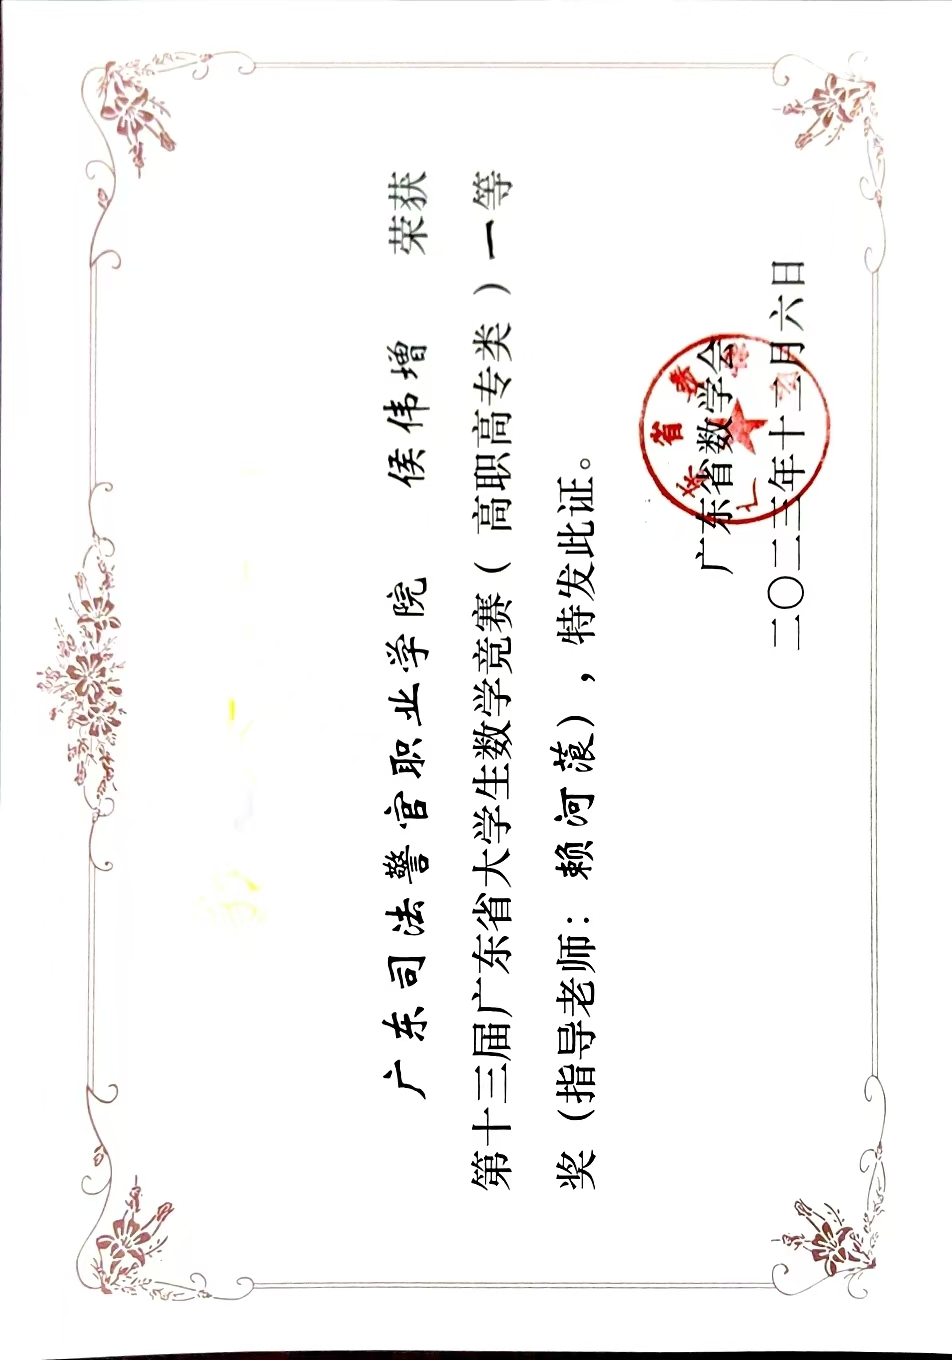 广东司法警官职业学院 侯伟增 荣获
第十三届广东省大学生数学竞赛（高职高专类）一等
奖（指导老师：赖河蒗），特发此证。
广东省数学会
二〇二三年十二月六日